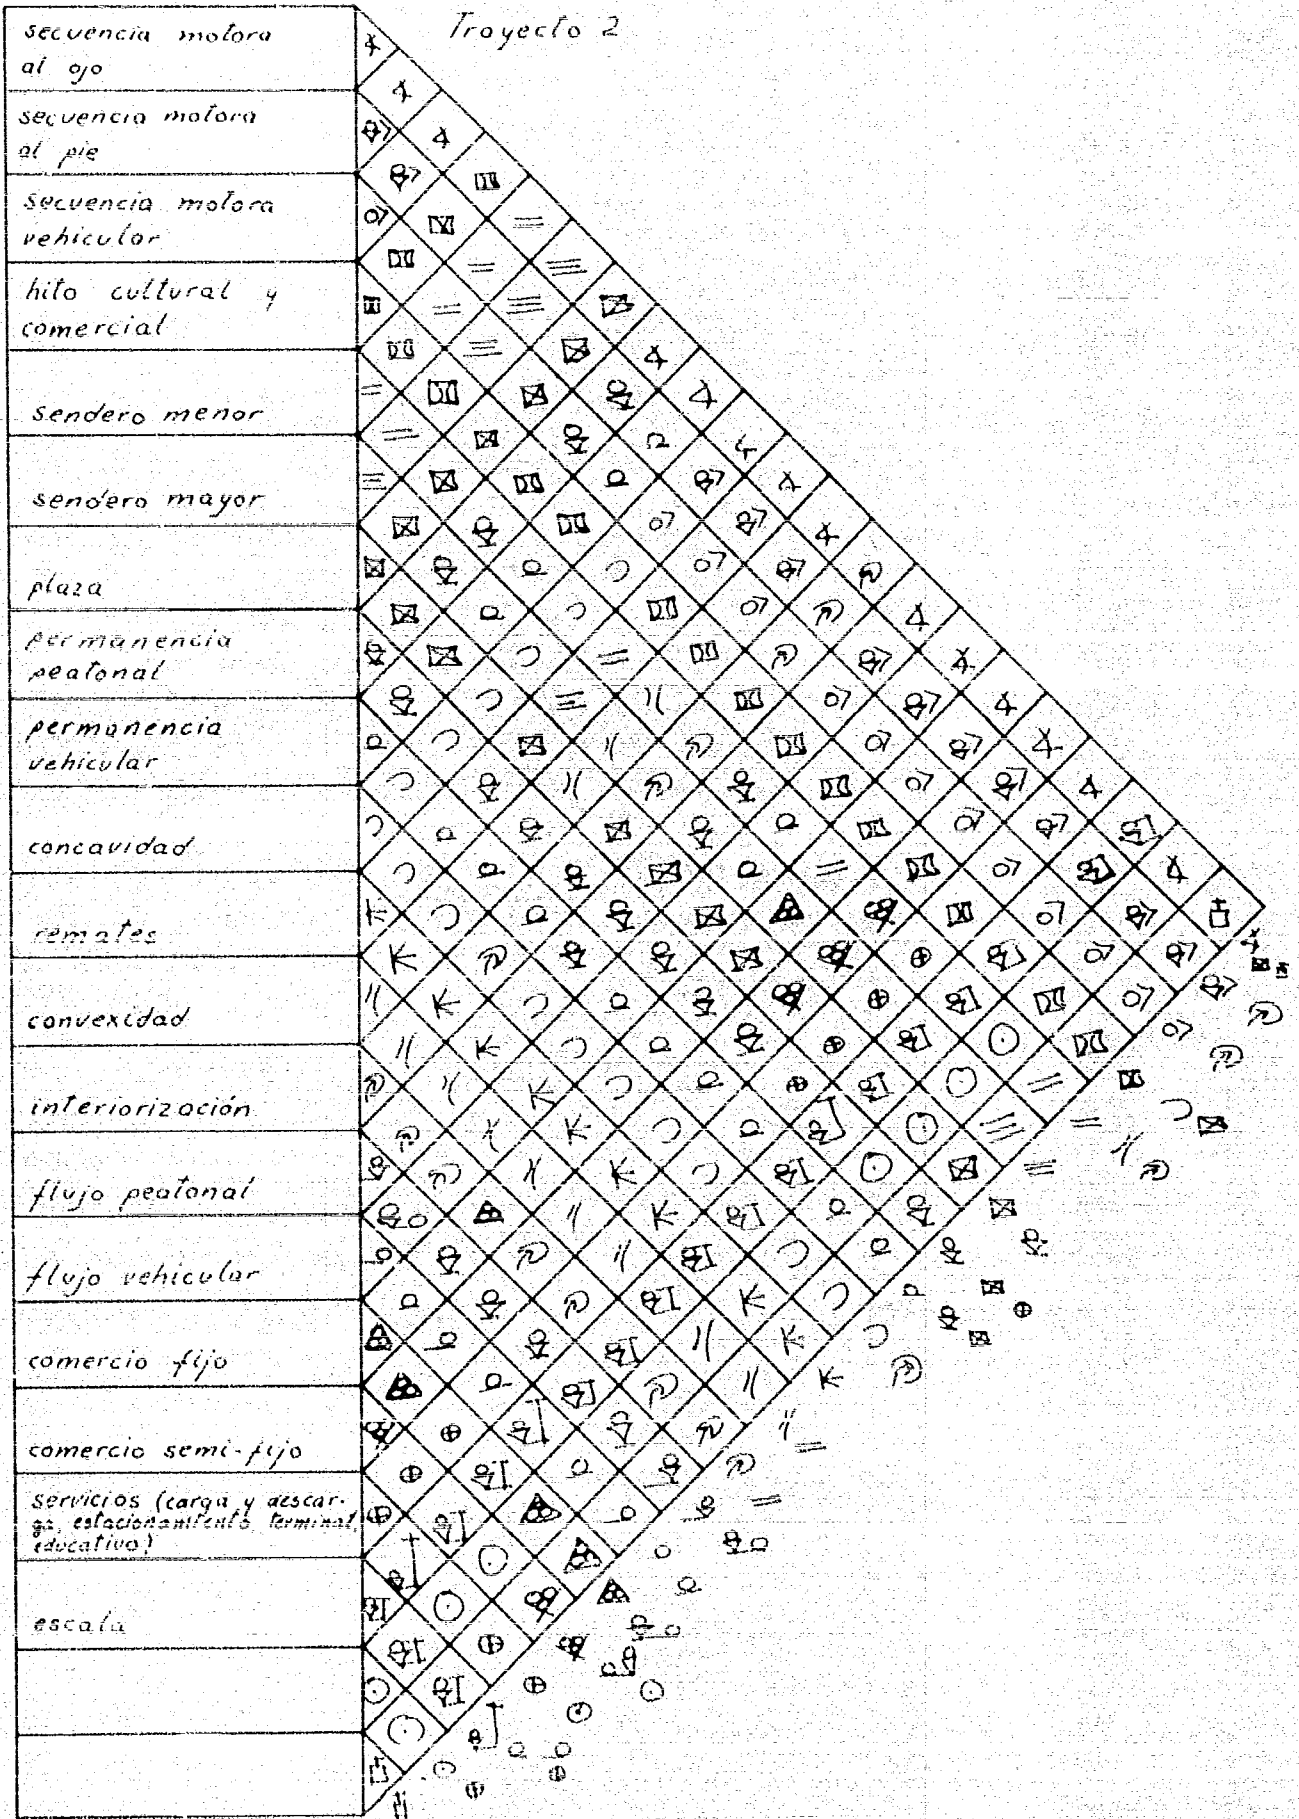 Trayecto 2
secuencia motora
al ojo
secuencia motora
al pie
secuencia motora
vehicular
hito cultural y
comercial
sendero menor
sendero mayor
plaza
permanencia
peatonal
permanencia
vehicular
concavidad
remates
convexidad
interiorización
flujo peatonal
flujo vehicular
comercio fijo
comercio semi-fijo
servicios (carga y descar-
ga, estacionamiento terminal,
educativo)
escala